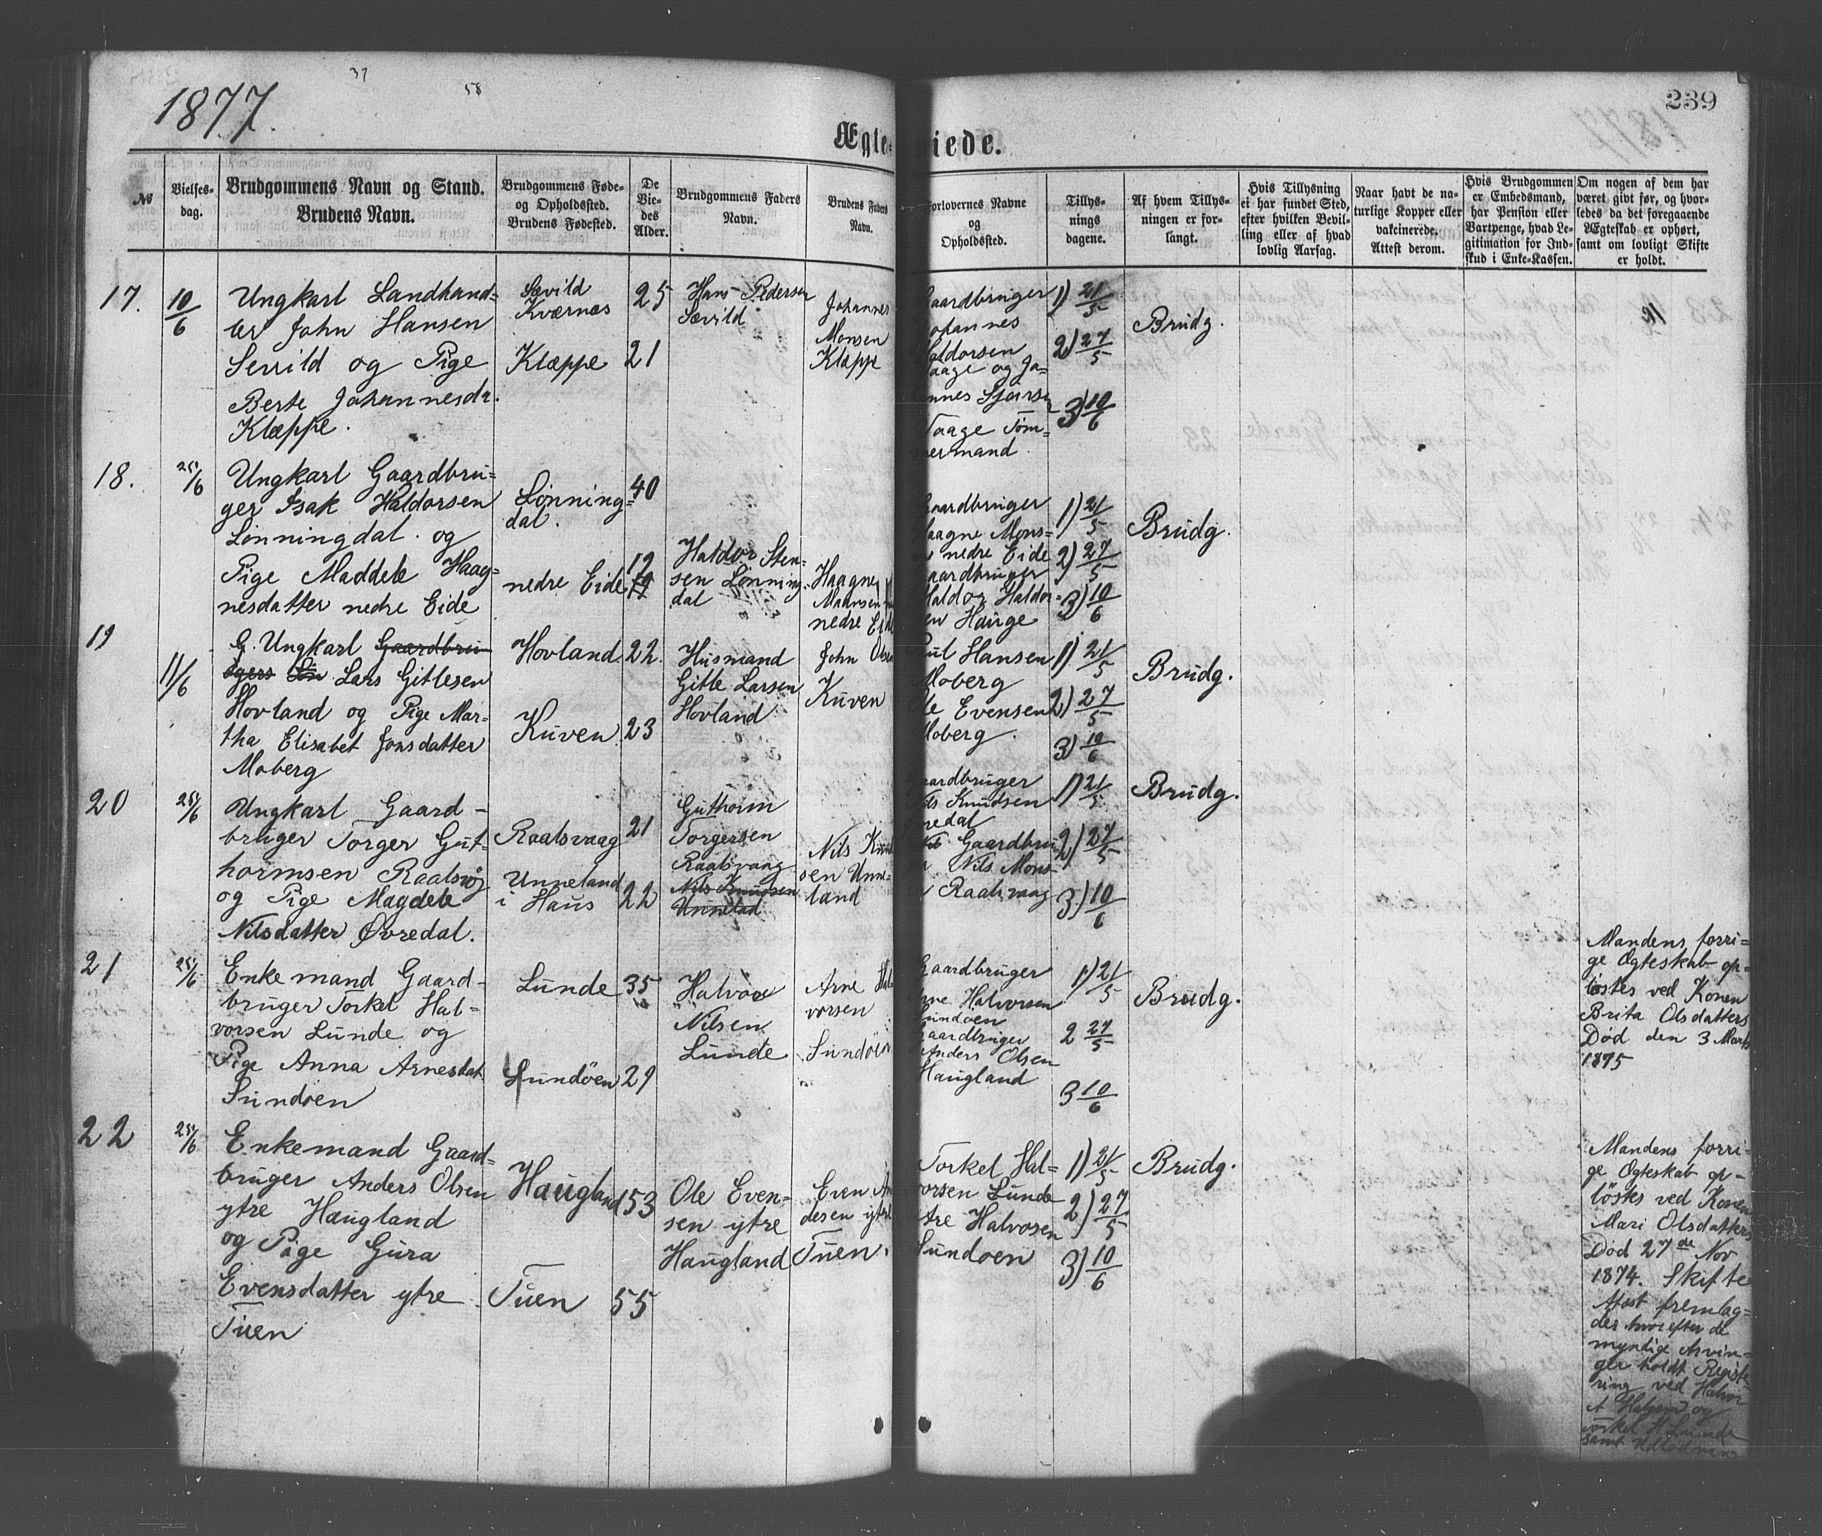 1877.
37
58
239
Ægte-
iede.
№
Vielses-
dag.
Brudgommens Navn og Stand.
Brudens Navn.
Brudgommens Føde-
og Opholdssted.
Brudens Fødested.
De
Vie-
des
Alder.
Brudgommens Faders
Navn.
Brudens Faders
Navn.
Forlovernes Navne
og
Opholdssted.
Tillys-
nings
dagene.
Af hvem Tillys-
ningen er for-
langt.
Hvis Tillysning
ei har fundet Sted,
efter hvilken Bevil-
ling eller af hvad
lovlig Aarsag.
Naar havt de na-
turlige Kopper eller
vakcinerede.
Attest derom.
Hvis Brudgommen
er Embedsmand,
har Pension eller
Vartpenge, hvad Le-
gitimation for Ind-
skud i Enke-Kassen.
Om nogen af dem har
været givt før, og hvor-
ledes da det foregaaende
Ægteskab er ophørt,
samt om lovligt Skifte
er holdt.
17.
10/6
Ungkarl Landhand-
ler John Hansen
Sevild og Pige
Berte Johannesdr.
Klæppe.
Sævild
Kværnæs
Klæppe
25
21
Hans Pedersen
Sævild
Johannes
Monsen
Klæppe
Gaardbruger
Johannes
Haldorsen
aage og Jo-
annes Sjurs
Vaage Töm-
mermand
1) 21/5
2) 27/5
3) 10/6
Brudg.
18.
25/6
Ungkarl Gaardbru-
ger Isak Haldorsen
Lønningdal og
Pige Maddele Haag-
nesdatter nedre Eide
Lønning-
dal.
nedre Eide
40
19
Haldor Sten-
sen Lønning-
dal
Haagne
Monsen
nedre Eide
Gaardbruger
Haagne Mons-
nedre Eide
Gaardbruger
Haldor Haldor-
en Hauge
1) 21/5
2) 27/5
3) 10/6
Brudg.
19
11/6
G. Ungkarl Gaardbru-
gers Sön Lars Gitlesen
Hovland og Pige Mar-
tha Elisabet Jonsdatter
Moberg
Hovland
Kuven
22.
23
Husmand
Gitle Larsen
Hovland
John Olsen
Kuven
Hansen
Moberg
Ole Evensen
Moberg.
1) 21/5
2) 27/5
3) 10/6
Brudg.
20
25/6
Ungkarl Gaard-
bruger Torger Gut-
hormsen Raalsvåg
og Pige Magdele
Nilsdatter Øvredal.
Raalsvaag
Unneland
i Haus
21
22
Guthorm
Torgersen
Raalsvaag
Nils Knudsen
Unnelad
Nils Knud
sen Unne-
land
Gaardbruger
Nils Knudsen
Øvredal
Gaardbru
Nils Mons-
Raalsvaag
1) 21/5
2) 27/5
3) 10/6
Brudg.
21
25/6
Enkemand Gaard-
bruger Torkel Hal-
vorsen Lunde og
Pige Anna Arnesdat
Sundöen
Lunde
Sundöen
35
29
Halvor
Nilsen
Lunde
Arne Hal
vorsen
Sundöen
Gaardbruger
Arne Halvorsen
Sundöen
Gaardbruger
Anders Olsen
Haugland
1) 21/5
2 27/5
3 10/6
Brudg.
Mandens forri-
ge Ægteskab op-
löstes ved Konen
Brita Olsdatters
Död den 3 Marts
1875
22
25/6
Enkemand Gaard-
bruger Anders Olsen
ytre Haugland
og Pige Gura
Evensdatter ytre
Tuen
Haugland
Tuen
53
55
Ole Even-
sen ytre
Haugland
Even An
desen ytre
Tuen.
Torkel Hal-
vorsen Lunde
Arne Halvorsen
Sundöen
1) 21/5
2) 27/5
3) 10/6
Brudg.
Mandens forri-
ge Ægteskab op-
löstes ved Konen
Mari Olsdatters
Död 27de Nov
1874. Skifte
Attest fremlag-
des hvorefter de
myndige Arvin-
ger holdt Registe
ring ved Halvor
Torkel H Lunde
samt